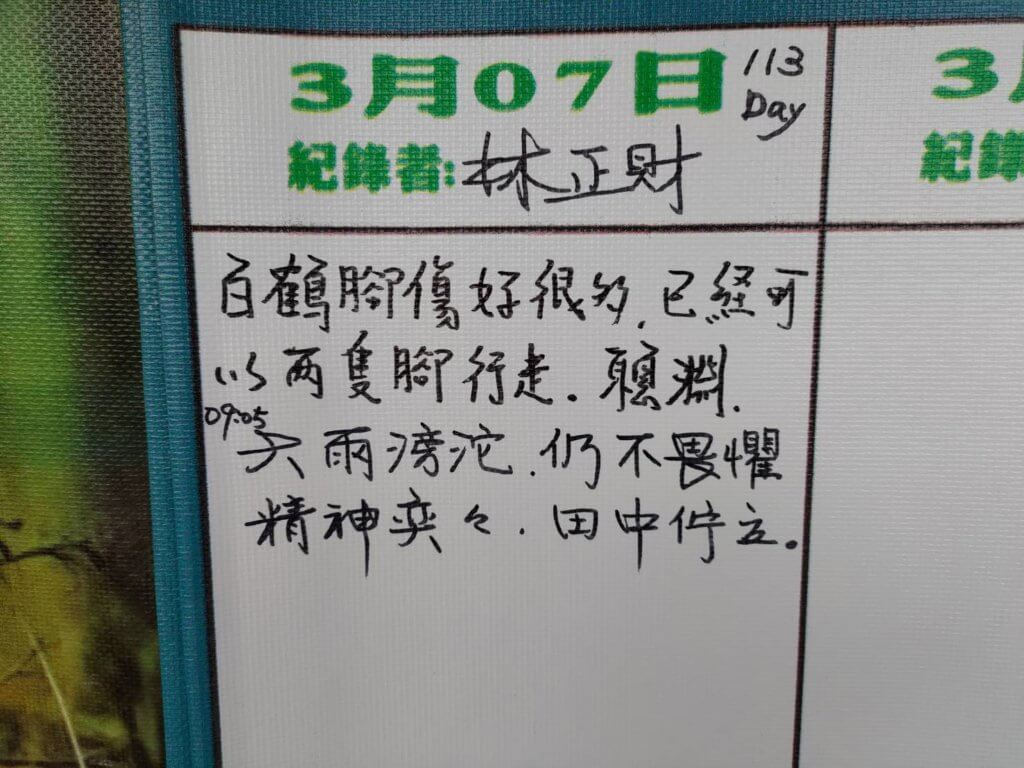 3月07日 113 Day
紀錄者: 林正財
3
紀錄
白鶴腳傷好很多.已経可
以两隻腳行走.聰淵.
09:05
大雨滂沱.仍不畏懼
精神奕々.田中佇立。